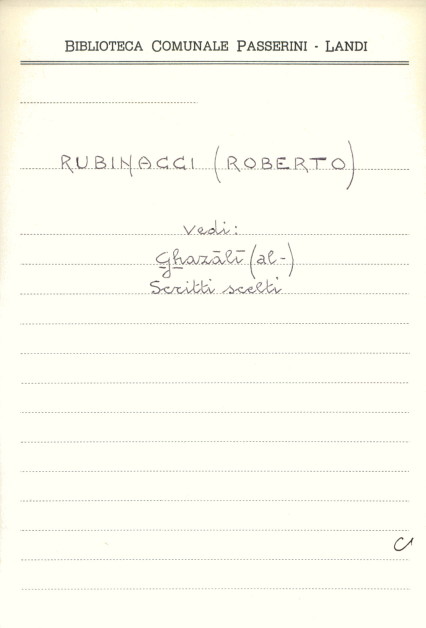 BIBLIOTECA COMUNALE PASSERINI - LANDI
RUBINACCI (ROBERTO)
Vedi:
Ghazālī (al-)
Scritti scelti